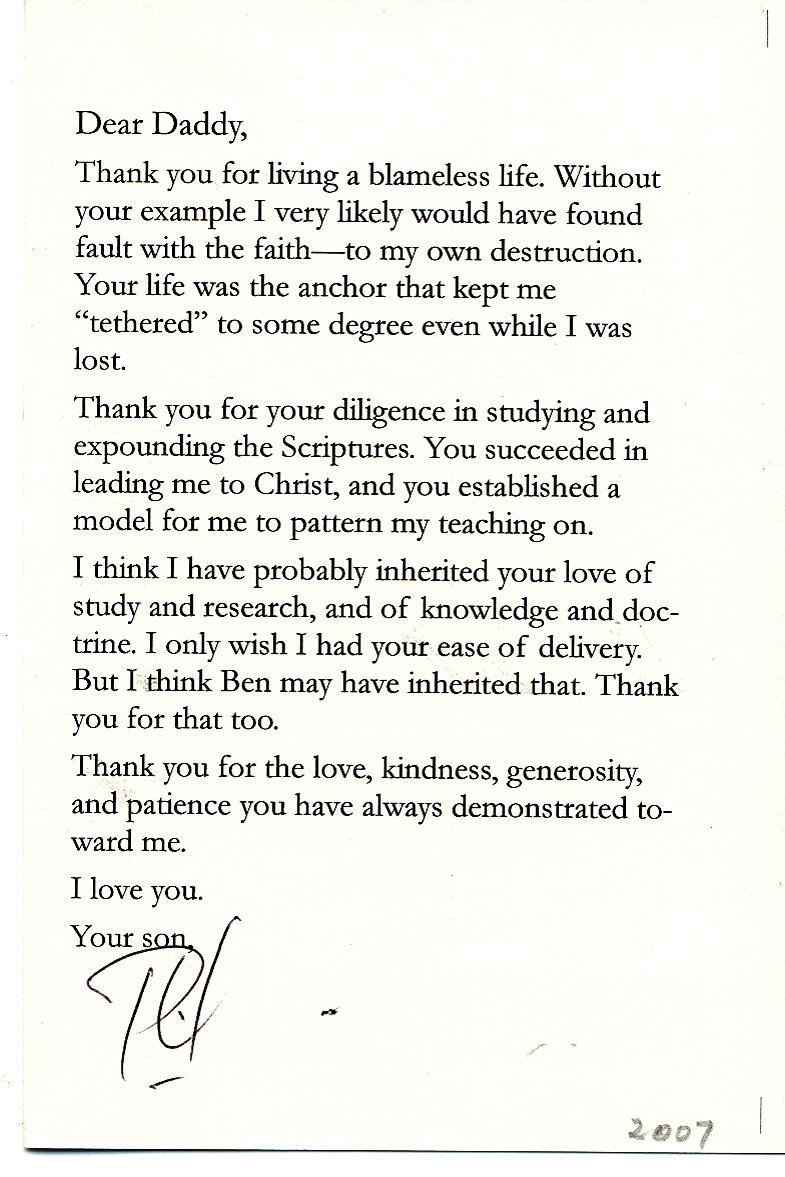 Dear Daddy,
Thank you for living a blameless life. Without
your example I very likely would have found
fault with the faith—to my own destruction.
Your life was the anchor that kept me
“tethered” to some degree even while I was
lost.
Thank you for your diligence in studying and
expounding the Scriptures. You succeeded in
leading me to Christ, and you established a
model for me to pattern my teaching on.
I think I have probably inherited your love of
study and research, and of knowledge and doc-
trine. I only wish I had your ease of delivery.
But I think Ben may have inherited that. Thank
you for that too.
Thank you for the love, kindness, generosity,
and patience you have always demonstrated to-
ward me.
I love you.
Your son,
2007